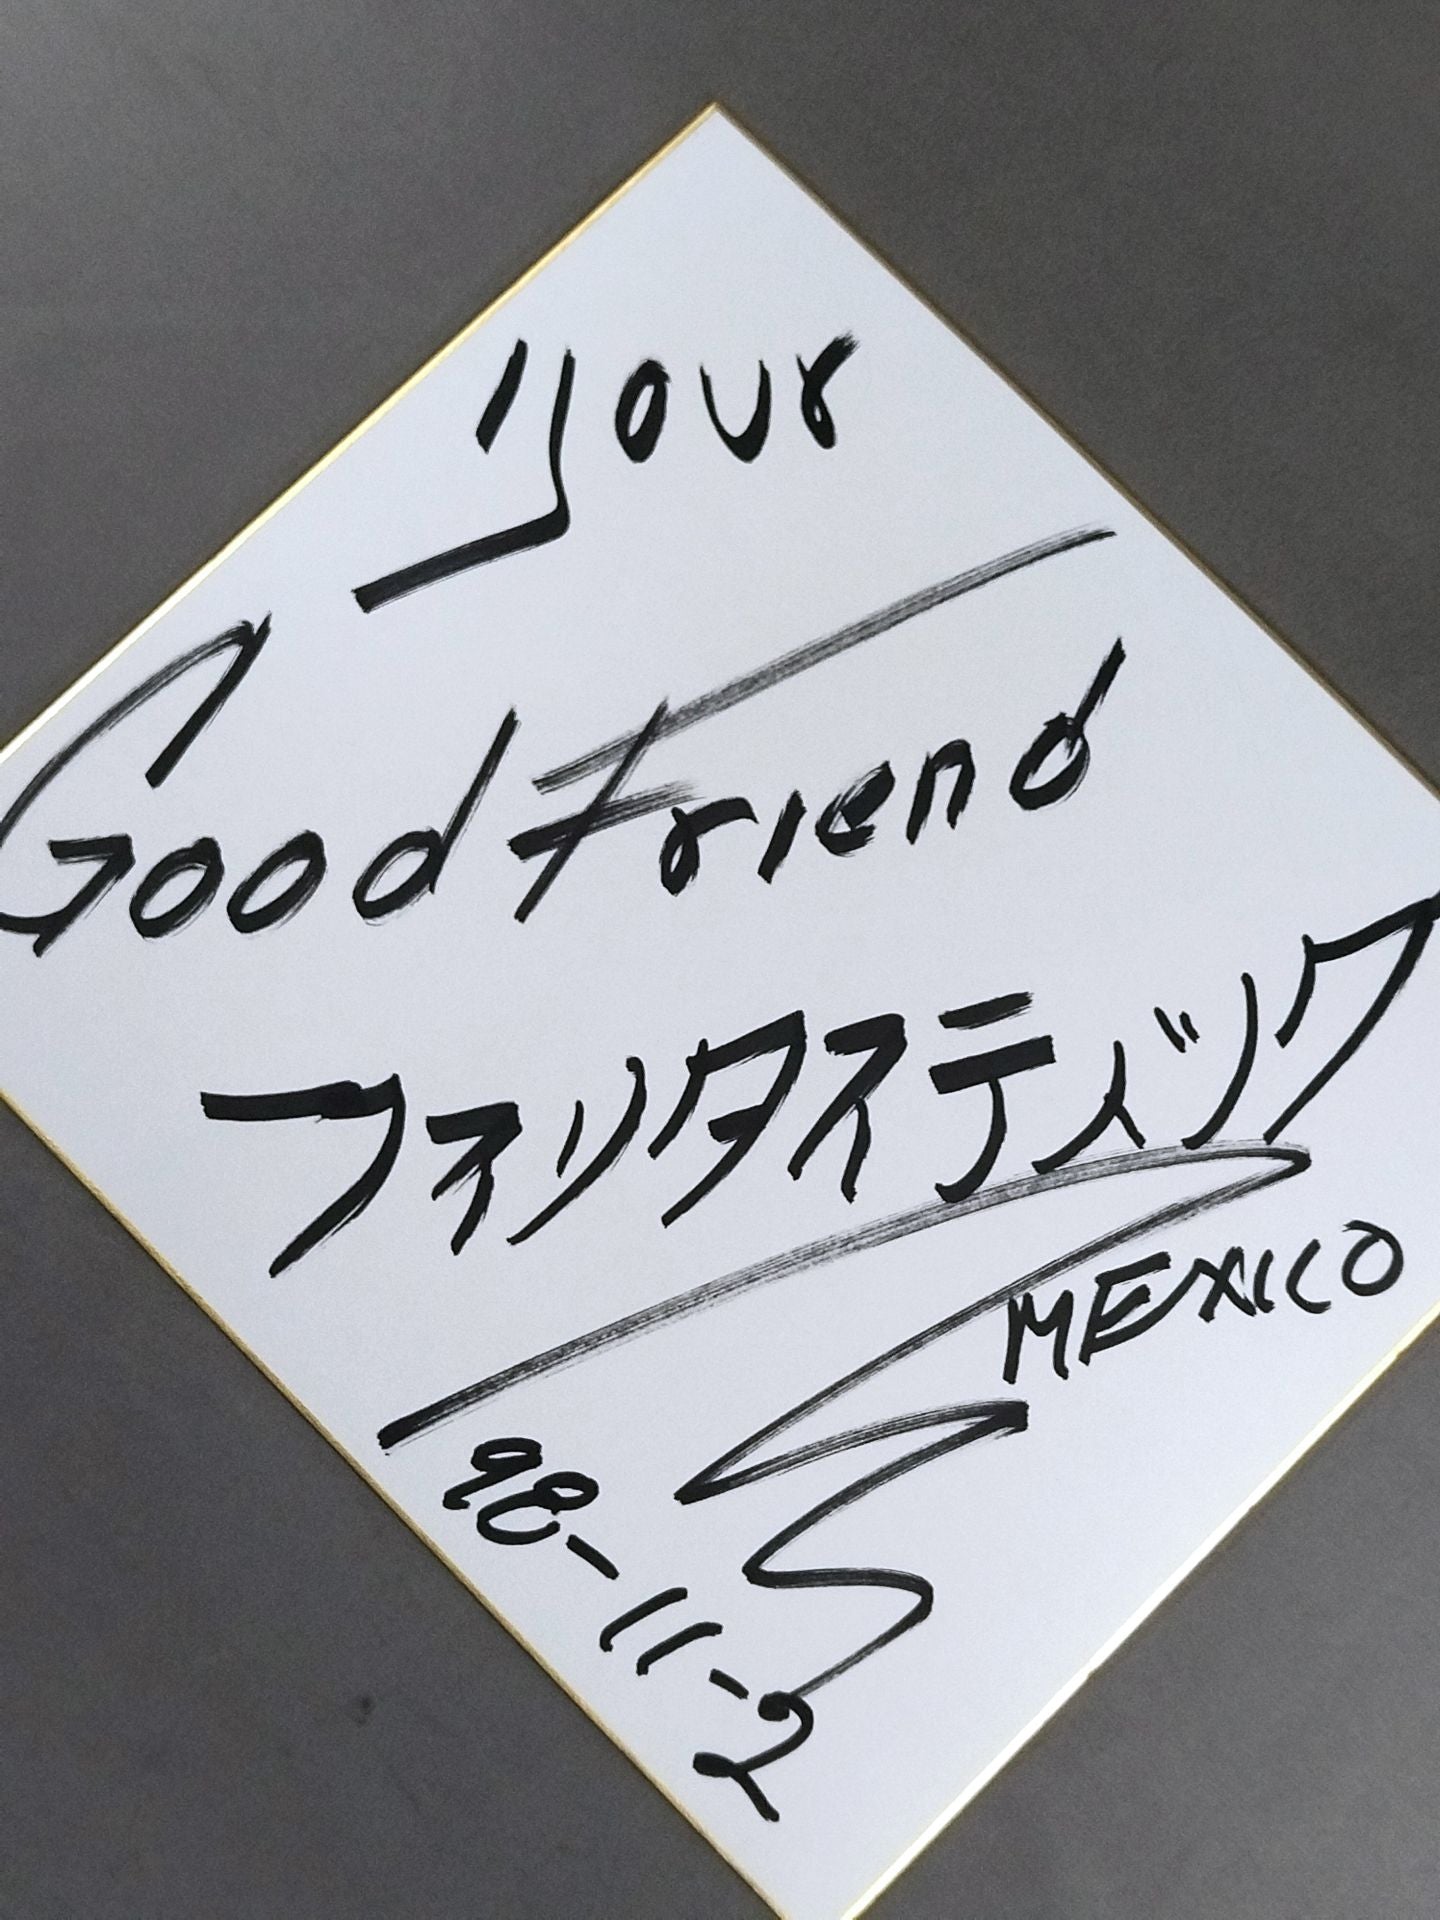 your
Good Friend
ファンタスティック
MEXICO
98-11-2